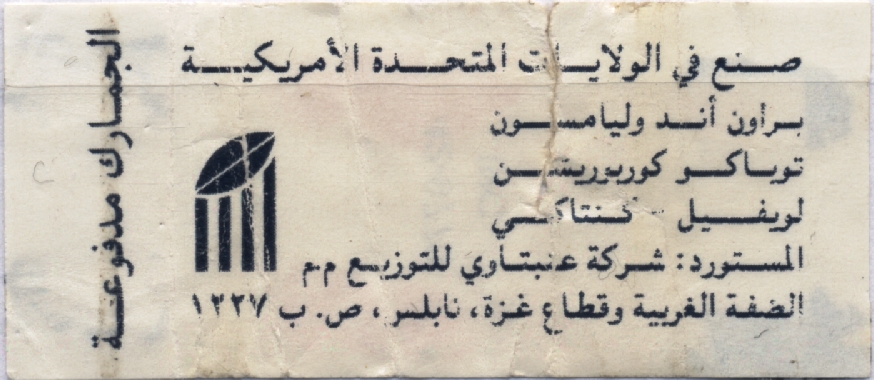 صنع في الولايات المتحدة الأمريكية
براون أند وليامسون
توباكو كوربوريشن
لويفيل - كنتاكي
المستورد: شركة عنبتاوي للتوزيع م.م
الضفة الغربية وقطاع غزة، نابلس، ص. ب ١٢٢٧
الجمارك مدفوعة